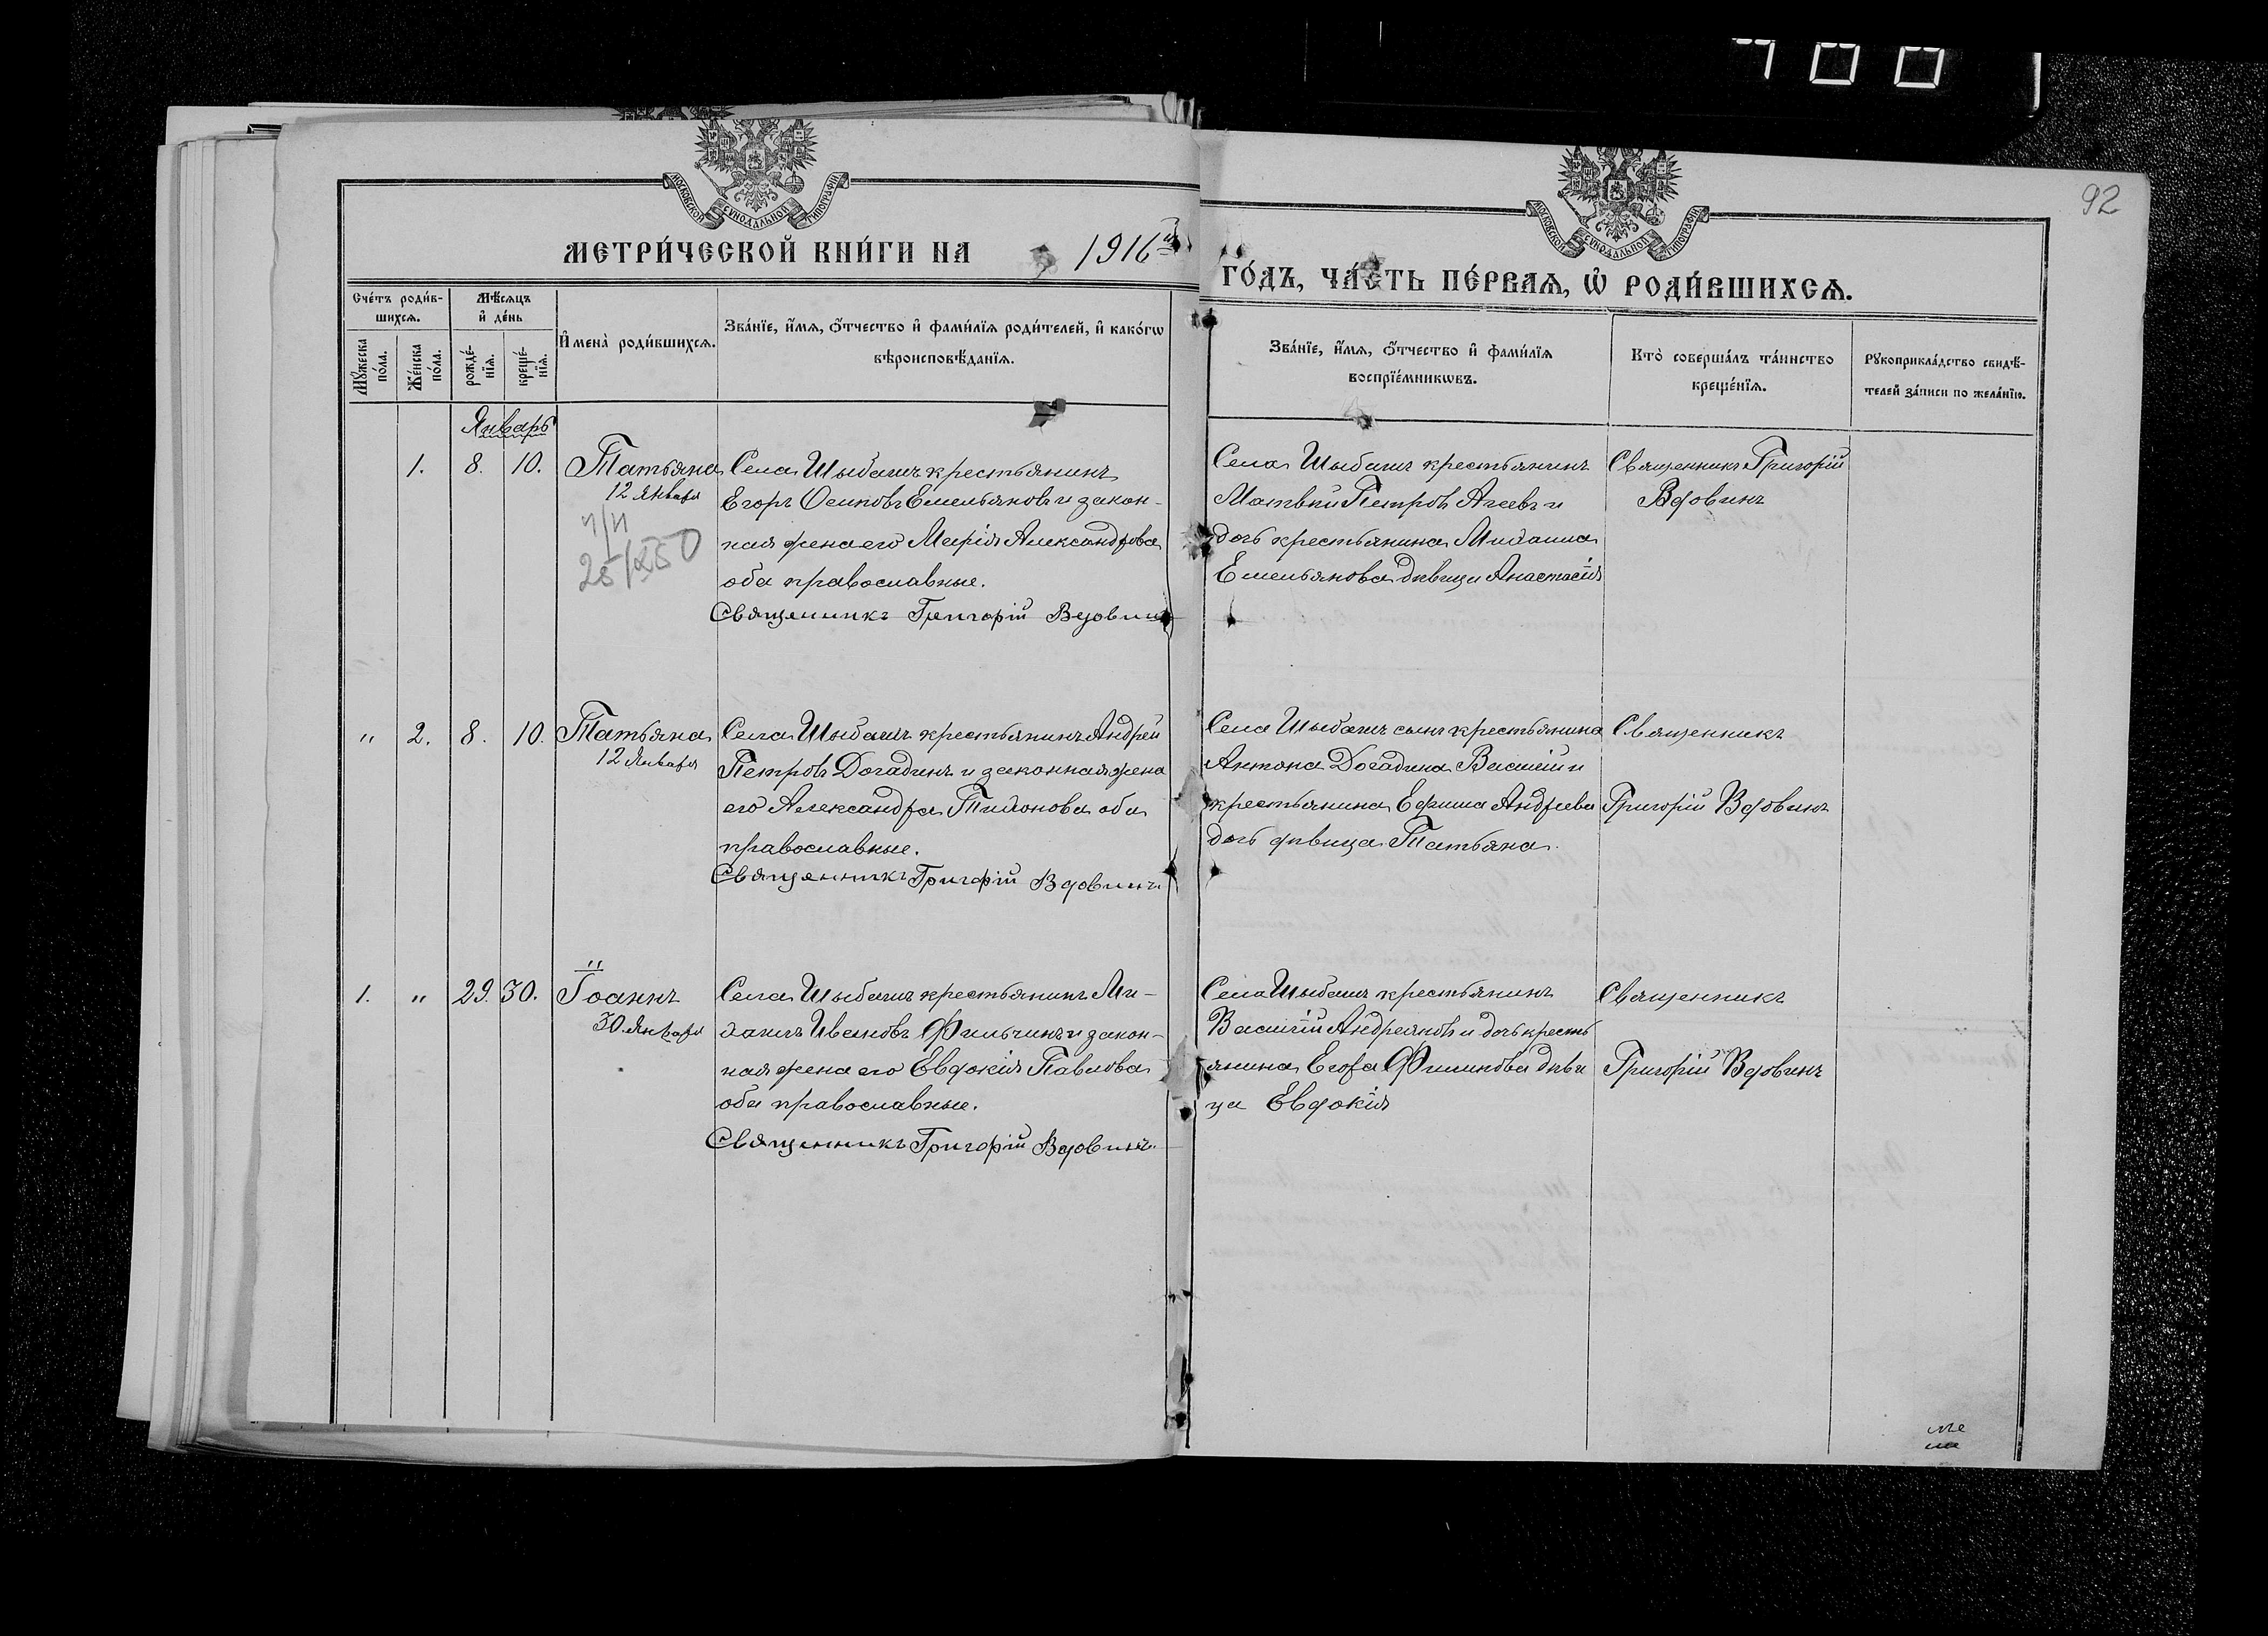 92
МОСКОВСКОЙ СѴНОДАЛЬНОЙ ТИПОГРАФІИ
МОСКОВСКОЙ СѴНОДАЛЬНОЙ ТИПОГРАФІИ
МЕТРИ́ЧЕСКОЙ КНИ́ГИ НА 1916й
ГО́ДЪ, ЧА́СТЬ ПЕ́РВАѦ, Ѡ҆ РОДИ́ВШИХСѦ.
Сче́тъ роди́в-
шихсѧ.
Мѣ́сѧцъ
и҆ де́нь
Мꙋ́жеска
по́ла.
Же́нска
по́ла.
рожде́-
нїѧ.
креще́-
нїѧ.
И҆мена̀ роди́вшихсѧ.
Зва́нїе, и҆́мѧ, ѻ҆́тчество и҆ фами́лїѧ роди́телей, и҆ како́гѡ
вѣроисповѣ́данїѧ.
Зва́нїе, и҆́мѧ, ѻ҆́тчество и҆ фами́лїѧ
воспрїе́мникѡвъ.
Кто̀ соверша́лъ та́инство
креще́нїѧ.
Рꙋкоприкла́дство свидѣ́-
телей за́писи по жела́нїю.
Январь
1. 8. 10. Татьяна
12 января
Села Шыбаши крестьянинъ
Егоръ Осиповъ Емельяновъ и закон-
ная жена его Марія Александрова
оба православные.
Священникъ Григорій Вдовинъ
Села Шыбаши крестьянинъ
Матвѣй Петровъ Агеевъ и
дочь крестьянина Михаила
Емельянова дѣвица Анастасія
Священникъ Григорій
Вдовинъ
" 2. 8. 10. Татьяна
12 Января
Села Шыбаши крестьянинъ Андрей
Петровъ Догадинъ и законная жена
его Александра Тихонова оба
православные.
Священникъ Григорій Вдовинъ
Села Шыбаши сынъ крестьянина
Антона Догадина Василій и
крестьянина Ефима Андреева
дочь дѣвица Татьяна.
Священникъ
Григорій Вдовинъ
1. " 29. 30. Іоаннъ
30 Января
Села Шыбаши крестьянинъ Ми-
хаилъ Ивановъ Фильчинъ и закон-
ная жена его Евдокія Павлова
оба православные.
Священникъ Григорій Вдовинъ.
Села Шыбаши крестьянинъ
Василій Андреяновъ и дочь кресть
янина Егора Филипова дѣви
ца Евдокія
Священникъ
Григорій Вдовинъ